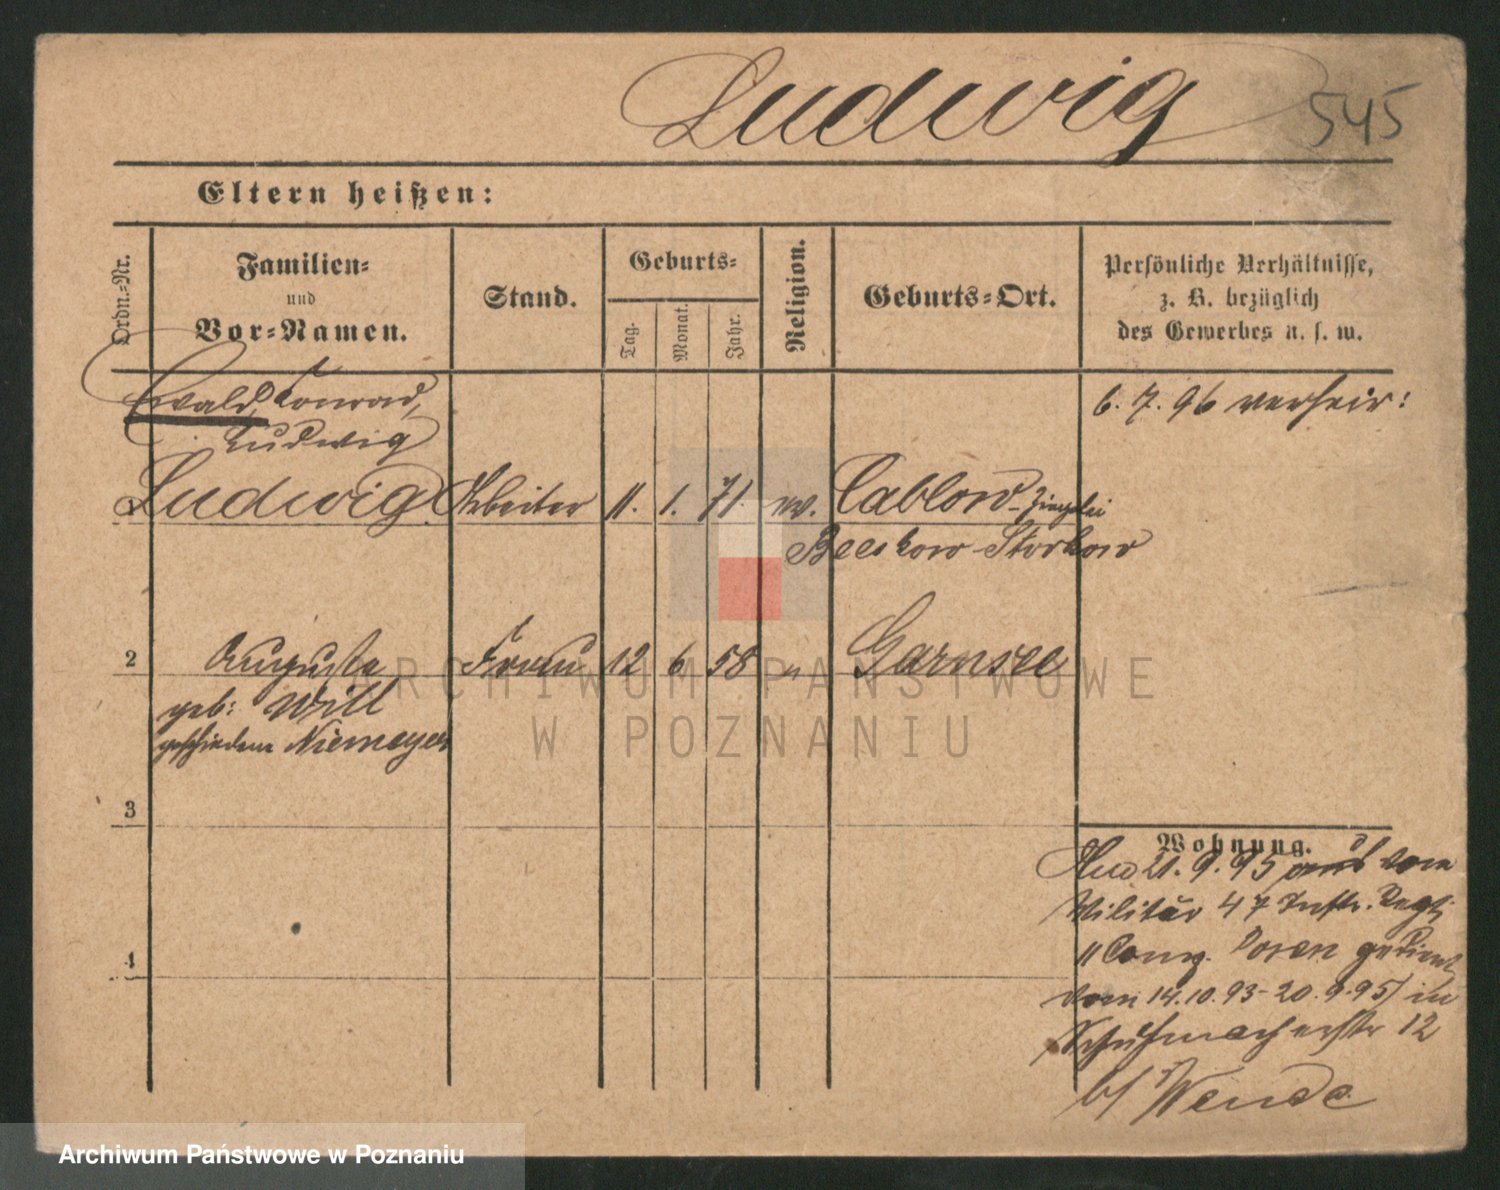 Ludwig 545
Eltern heißen:
Ordn.-Nr.
Familien-
und
Vor-Namen.
Stand.
Geburts-
Tag.
Monat.
Jahr.
Religion.
Geburts-Ort.
Persönliche Verhältnisse,
z. B. bezüglich
des Gewerbes u. s. w.
Ewald, Konrad,
Ludwig
6. 7. 96 verheir:
1 Ludwig Arbeiter 11. 1. 71. ev. Cablow-Ziegelei
Beeskow-Storkow
2 Auguste Frau 12 6 58 " Garnsee
geb: Will
geschiedene Niemeyer
3
4
Wohnung.
21. 9. 95 vom
Militär 47 Inftr. Regt;
11 Comp. Posen gedient
vom 14.10.93-20.9.95) in
Schuhmacherstr 12
b/ Wende
ARCHIWUM PAŃSTWOWE
W POZNANIU
Archiwum Państwowe w Poznaniu